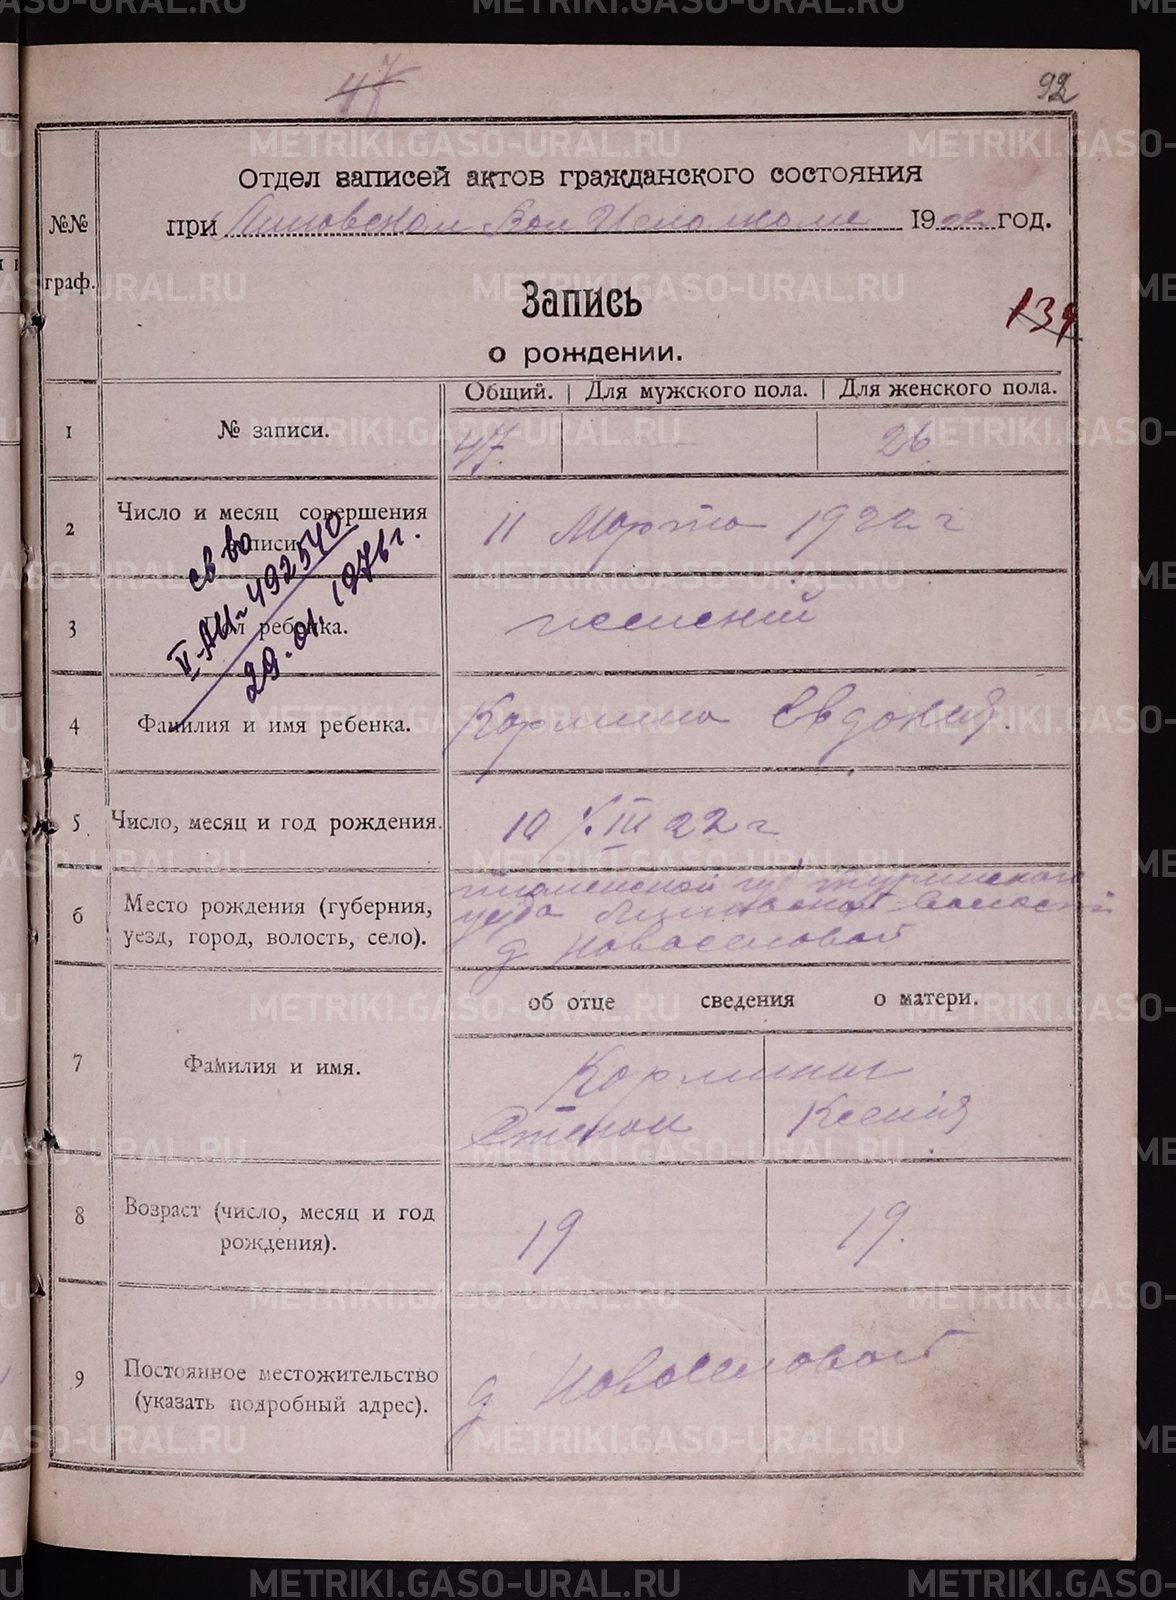 47
92
Отдел записей актов гражданского состояния
при Липовском Вол Исполкоме 1922 год.
№№
граф.
Запись
о рождении.
134
Общий. | Для мужского пола. | Для женского пола.
1 № записи. 47. — 26.
2 Число и месяц совершения записи. 11 Марта 1922 г
св во
V-АИ № 492540
29.01.1976 г.
3 Пол ребенка. женский
4 Фамилия и имя ребенка. Кормина Евдокия.
5 Число, месяц и год рождения. 10 III 22 г
6 Место рождения (губерния, Тюменской губ Туринского
уезд, город, волость, село). уезда Липовской Волости
д Новоселовой
об отце сведения о матери.
7 Фамилия и имя. Кормины
Степан Ксенія
8 Возраст (число, месяц и год
рождения). 19 19.
9 Постоянное местожительство
(указать подробный адрес). д Новоселовой
METRIKI.GASO-URAL.RU